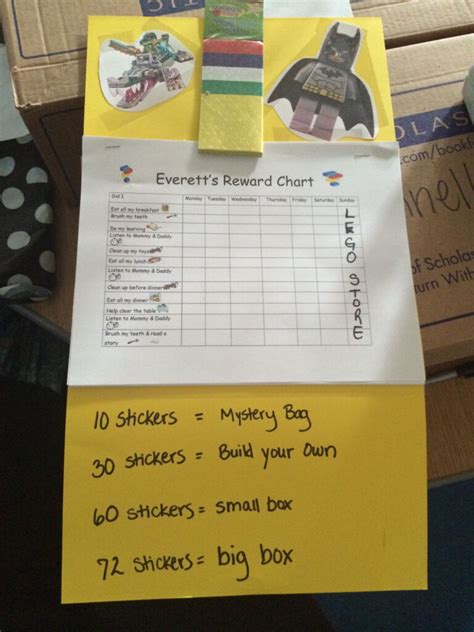 OLAS
.com/bookf
nnell
of Schola
turn With
Everett's Reward Chart
Monday Tuesday Wednesday Thursday Friday Saturday Sunday
Eat all my breakfast
Brush my teeth
Do my learning
Listen to Mommy & Daddy
Clean up my toys
Eat all my lunch
Listen to Mommy & Daddy
Clean up before dinner
Eat all my dinner
Help clear the table
Listen to Mommy & Daddy
Brush my teeth & read a
story
LEGO STORE
10 stickers = Mystery Bag
30 stickers = Build your Own
60 stickers = small box
72 stickers = big box